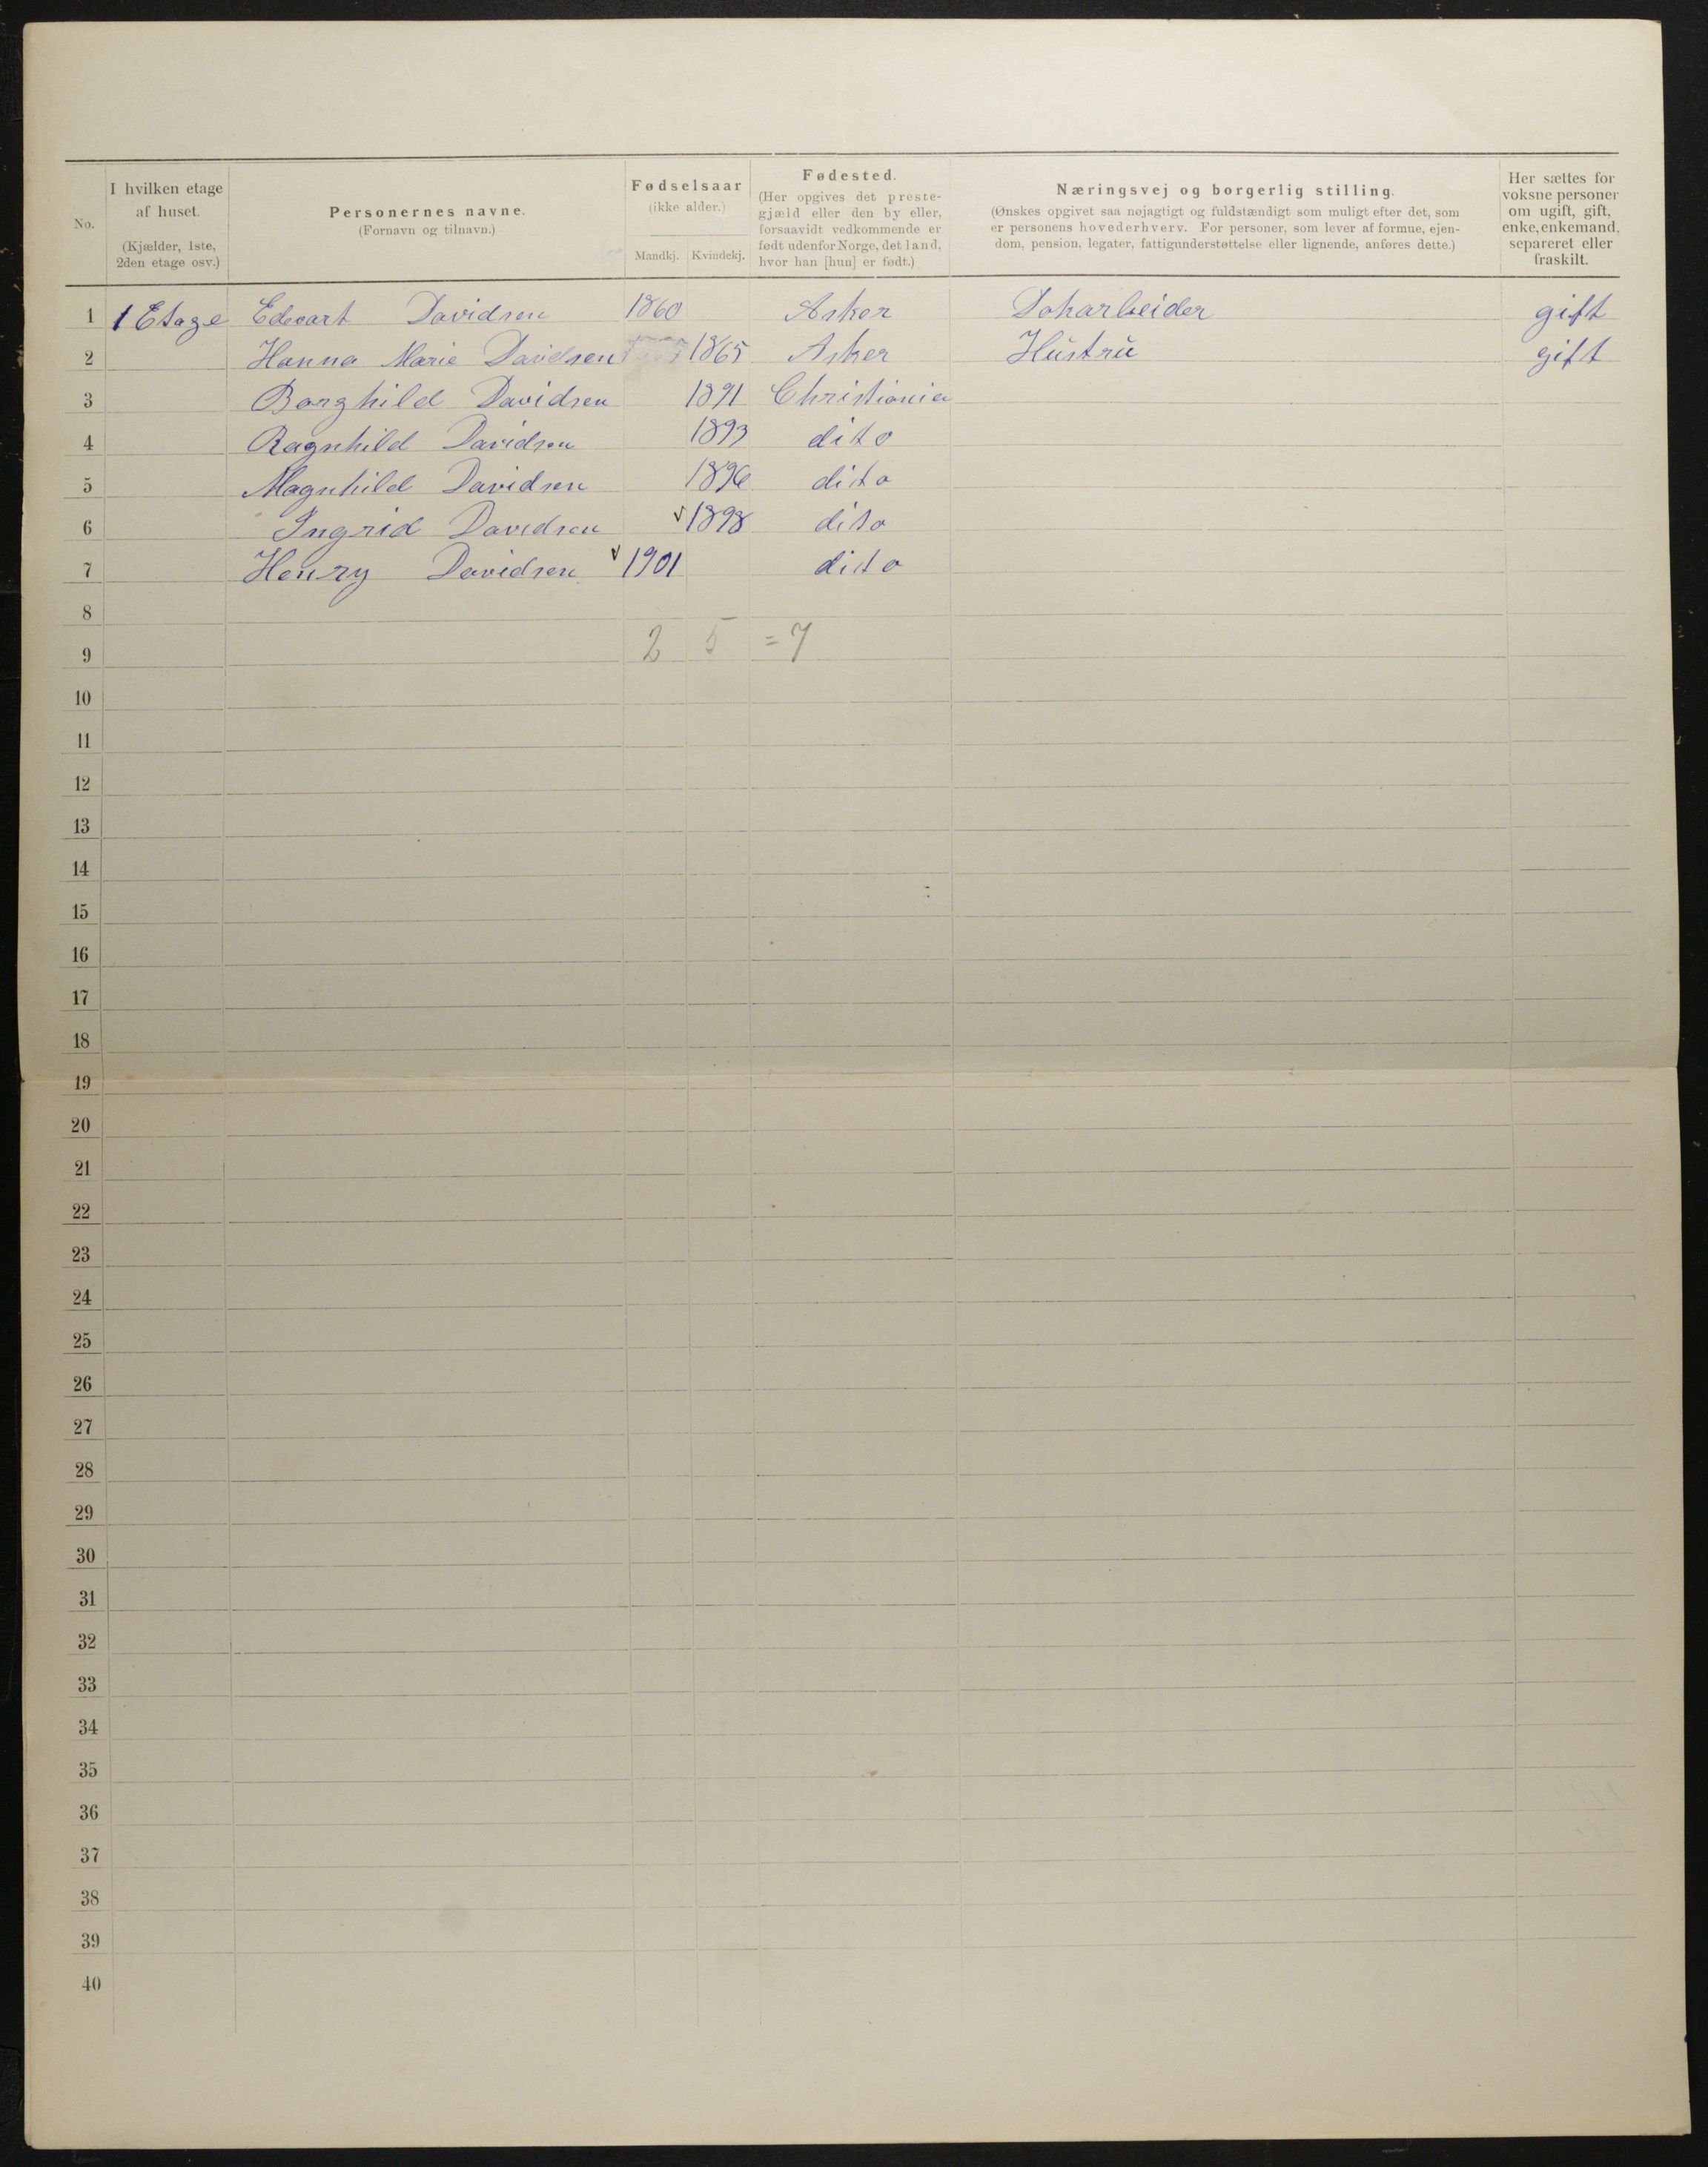 No.
I hvilken etage af huset.
(Kjælder, 1ste, 2den etage osv.)
Personernes navne.
(Fornavn og tilnavn.)
Fødselsaar
(ikke alder.)
Mandkj. Kvindekj.
Fødested.
(Her opgives det prestegjæld eller den by eller, forsaavidt vedkommende er født udenfor Norge, det land, hvor han [hun] er født.)
Næringsvej og borgerlig stilling.
(Ønskes opgivet saa nøjagtigt og fuldstændigt som muligt efter det, som
er personens hovederhverv. For personer, som lever af formue, ejen-
dom, pension, legater, fattigunderstøttelse eller lignende, anføres dette.)
Her sættes for
voksne personer
om ugift, gift,
enke, enkemand,
separeret eller
fraskilt.
1 1 Etage Edevart Davidsen 1860 Asker Dokarbeider gift
2 Hanna Marie Davidsen 1865 Asker Hustru gift
3 Borghild Davidsen 1891 Christiania
4 Ragnhild Davidsen 1893 dito
5 Magnhild Davidsen 1896 dito
6 Ingrid Davidsen 1898 dito
7 Henry Davidsen 1901 dito
8
9 2 5 = 7
10
11
12
13
14
15
16
17
18
19
20
21
22
23
24
25
26
27
28
29
30
31
32
33
34
35
36
37
38
39
40